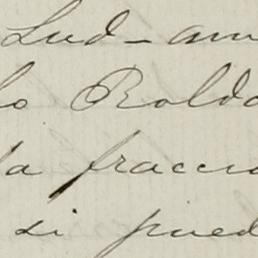 Lud-am
lo Roldo
la fracci
si pued